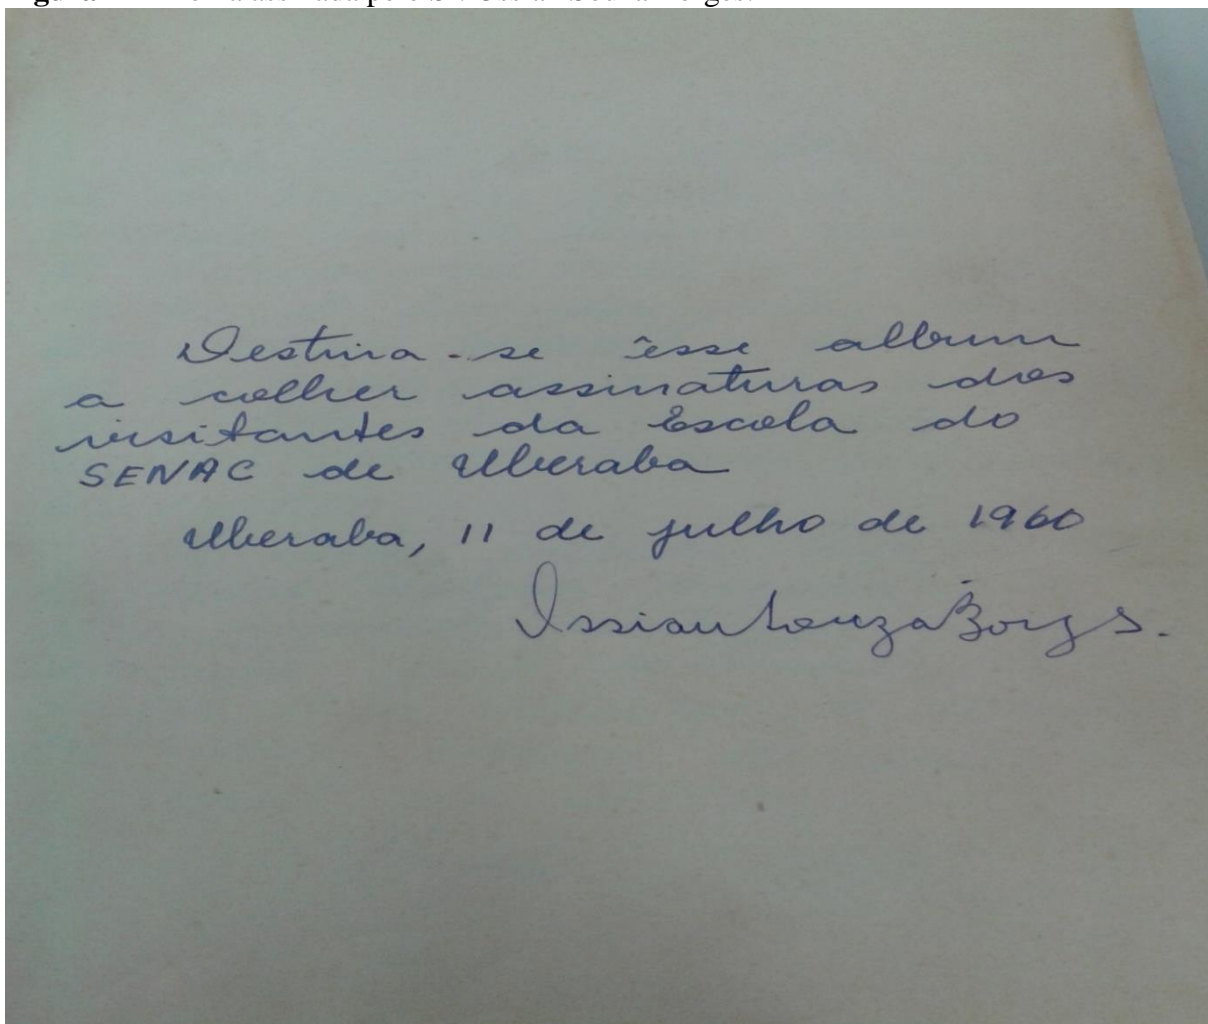 Destina-se êsse album
a colher assinaturas dos
visitantes da Escola do
SENAC de Uberaba
Uberaba, 11 de julho de 1960
Ossian Souza Borges.